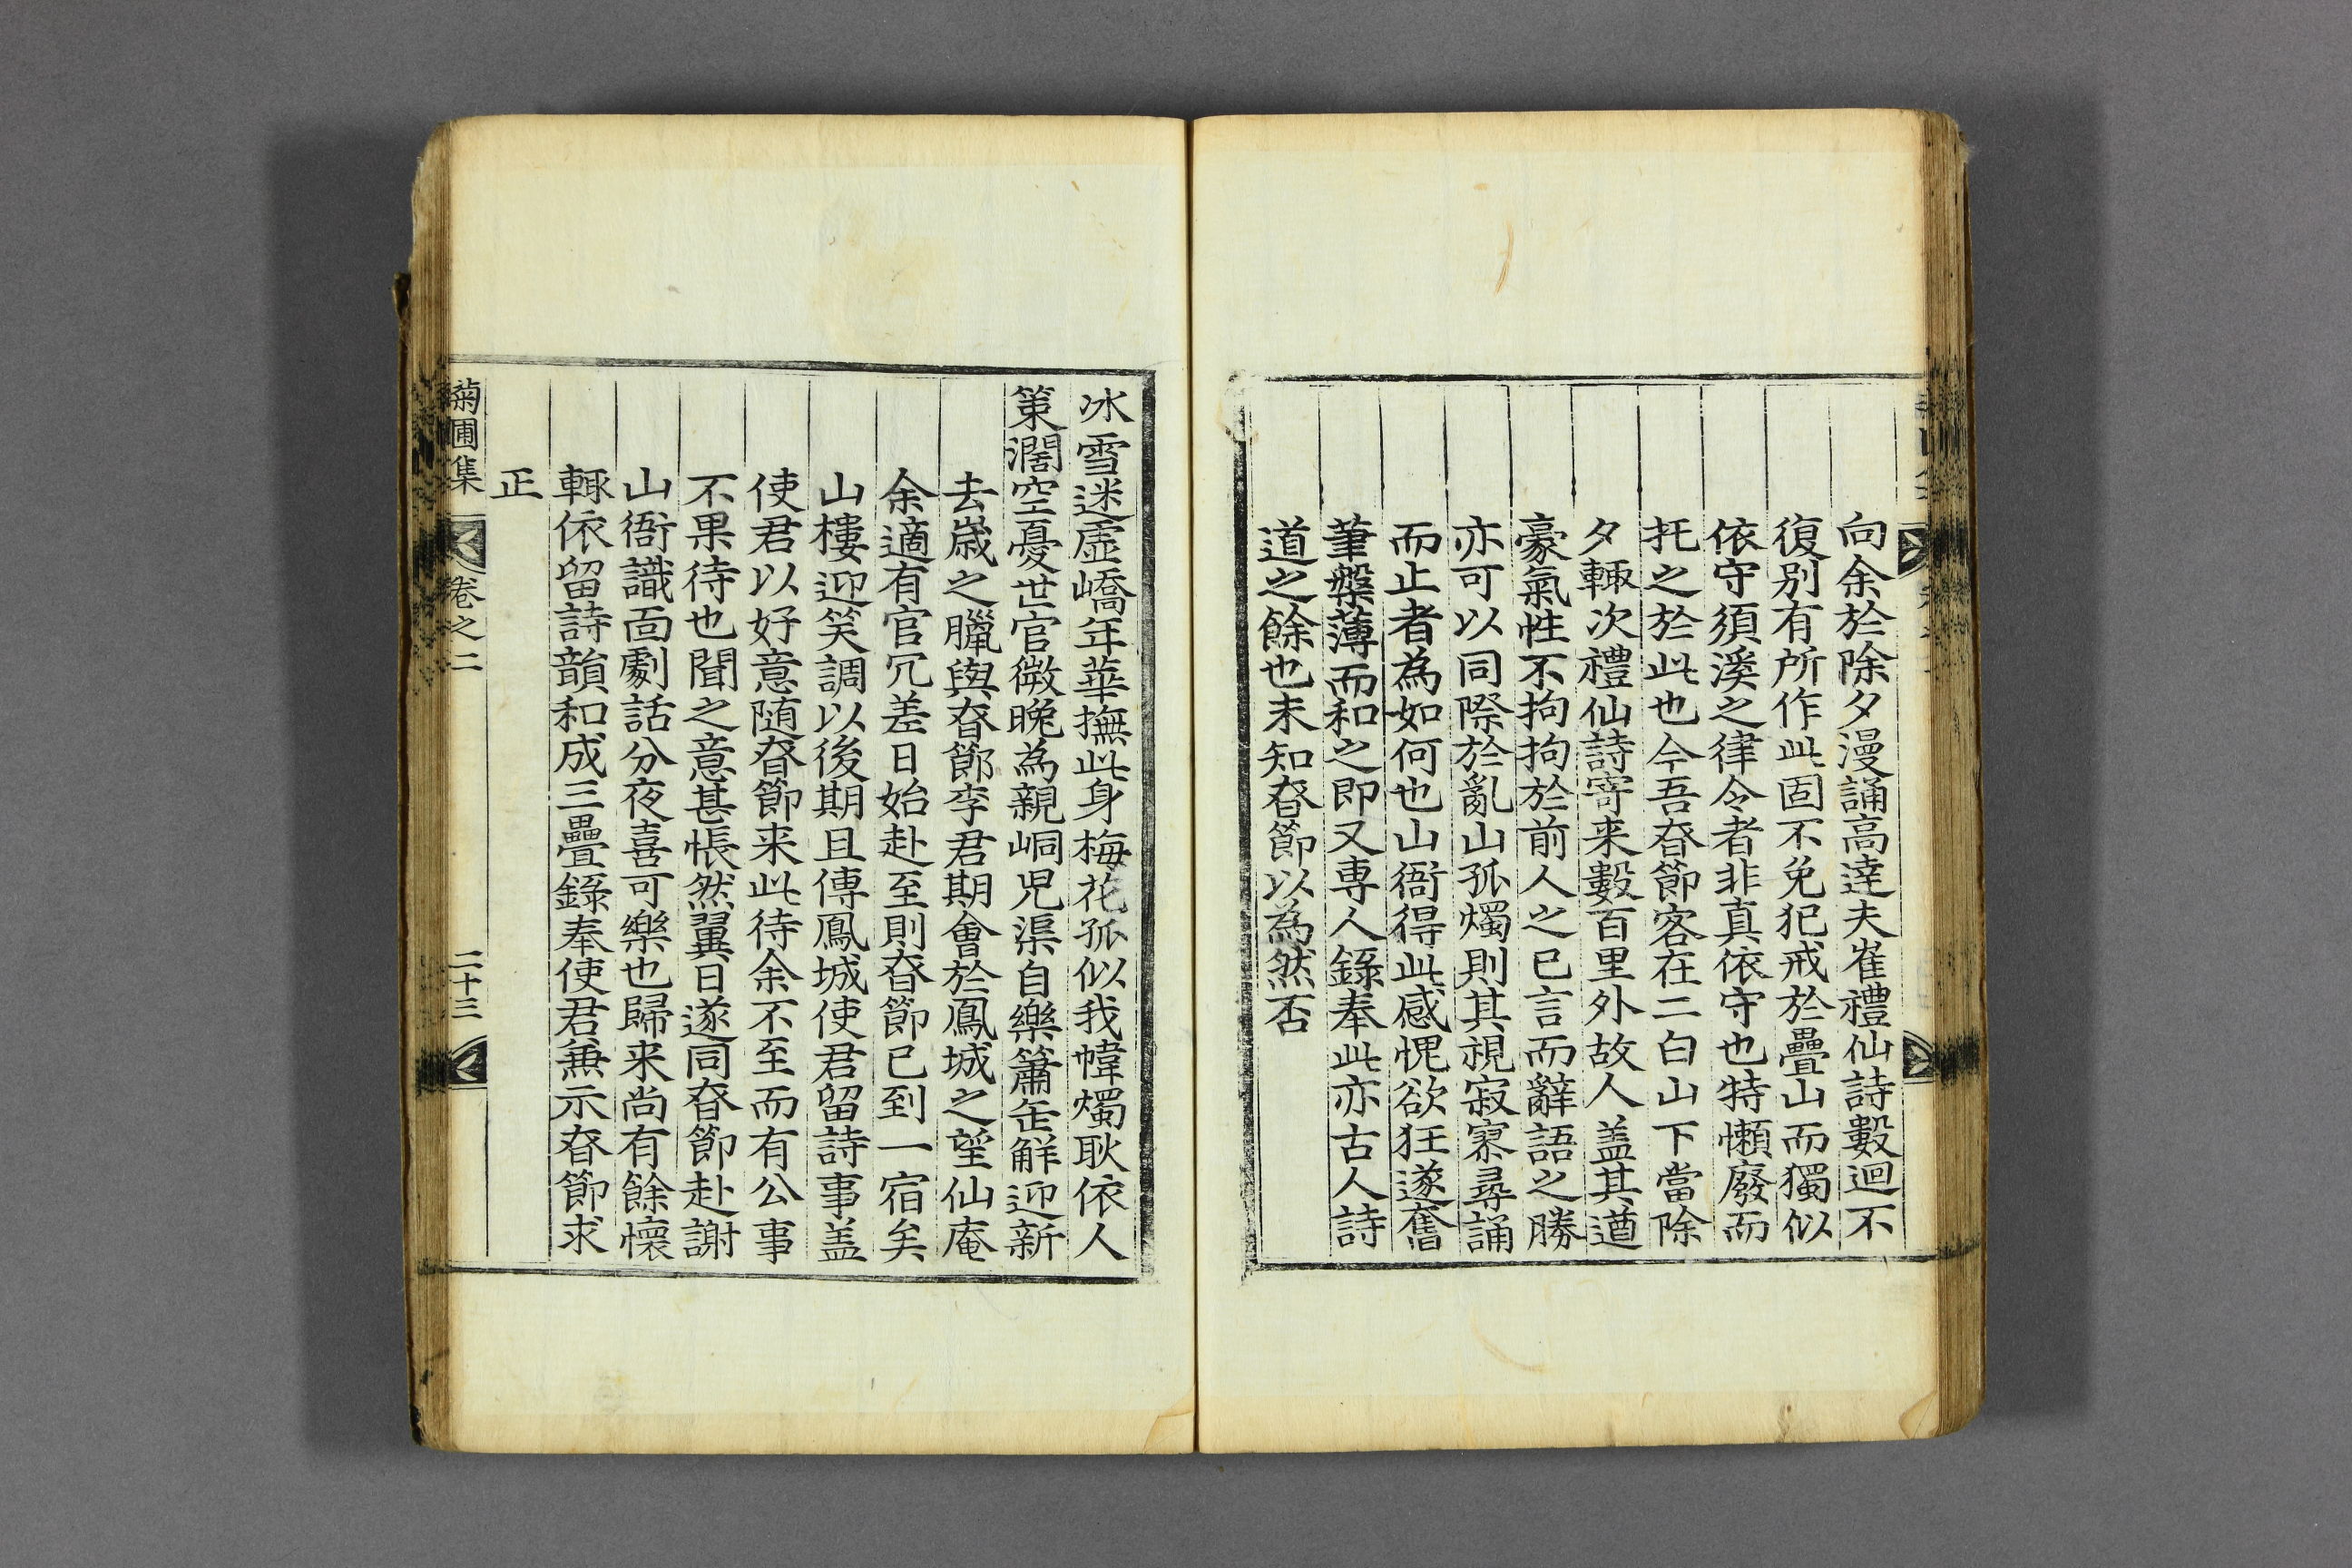 向余於除夕漫誦高達夫崔禮仙詩數迴不
復別有所作此固不免犯戒於疊山而獨似
依守須溪之律令者非真依守也特懶廢而
托之於此也今吾春節客在二白山下當除
夕輒次禮仙詩寄来數百里外故人盖其遒
豪氣性不拘拘於前人之已言而辭語之勝
亦可以同際於亂山孤燭則其視寂寞尋誦
而止者為如何也山衙得此感愧欲狂遂奮
筆槃薄而和之即又専人錄奉此亦古人詩
道之餘也未知春節以為然否
冰雪迷虛嶠年華撫此身梅花孤似我幃燭耿依人
策濶空憂世官微晩為親峒児渠自樂簫缶觧迎新
去歲之臘與春節李君期會於鳳城之望仙庵
余適有官冗差日始赴至則春節已到一宿矣
山樓迎笑調以後期且傳鳳城使君留詩事盖
使君以好意随春節来此待余不至而有公事
不果待也聞之意甚悵然翼日遂同春節赴謝
山衙識面劇話分夜喜可樂也歸来尚有餘懷
輒依留詩韻和成三疊錄奉使君兼示春節求
正
菊圃集
卷之二
二十三